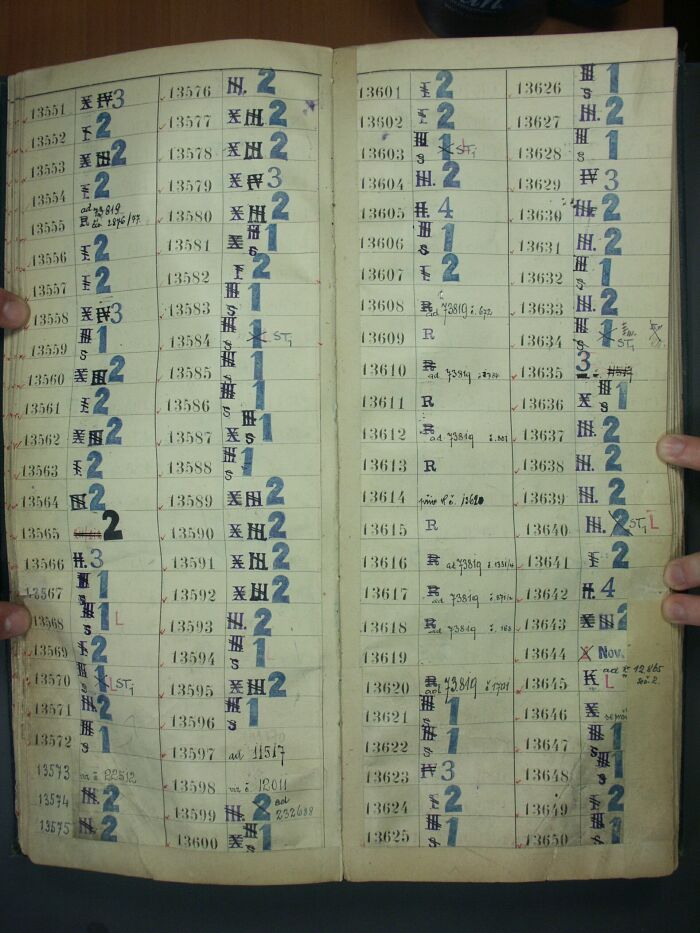 13551 X IV 3
13552 I 2
13553 X III 2
13554 I 2
13555 ad 73819 R
13556 I 2
13557 I 2
13558 X IV 3
13559 III S 1
13560 X III 2
13561 I 2
13562 X III 2
13563 I 2
13564 III 2
13565 2
13566 II. 3
13567 III S 1
13568 III S 1 L
13569 I 2
13570 III S 1 ST1
13571 III. 2
13572 III S 1
13573 viz č 22512
13574 III. 2
13575 III. 2
13576 III. 2
13577 X III 2
13578 X III 2
13579 X IV 3
13580 X III 2
13581 X III S 1
13582 I 2
13583 III S 1
13584 III S 1 ST1
13585 III S 1
13586 III S 1
13587 X III S 1
13588 III S 1
13589 X III 2
13590 X III. 2
13591 X III. 2
13592 X III. 2
13593 III. 2
13594 III S 1
13595 X III. 2
13596 III S 1
13597 ad 11517
13598 viz č 12011
13599 III. 2 ad 232688
13600 X III S 1
13601 I 2
13602 I 2
13603 III S 1 ST1
13604 III. 2
13605 II. 4
13606 III S 1
13607 I 2
13608 R ad 73819 č. 672
13609 R
13610 R ad 73819
13611 R
13612 R ad 73819
13613 R
13614
13615 R
13616 R ad 73819
13617 R ad 73819
13618 R ad 73819 č. 163
13619
13620 R ad 73819 č 1701
13621 III S 1
13622 III S 1
13623 IV 3
13624 I 2
13625 III S 1
13626 III S 1
13627 III. 2
13628 III S 1
13629 IV 3
13630 III. 2
13631 III. 2
13632 III S 1
13633 III. 2
13634 III S 1 ST1
13635 3
13636 X III S 1
13637 III. 2
13638 III. 2
13639 III. 2
13640 III. 2 ST1 L
13641 I 2
13642 II. 4
13643 X III 2
13644 X Nov.
13645 K L ad č 12.865
13646 X
13647 III S 1
13648 III S 1
13649 I 2
13650 III S 1